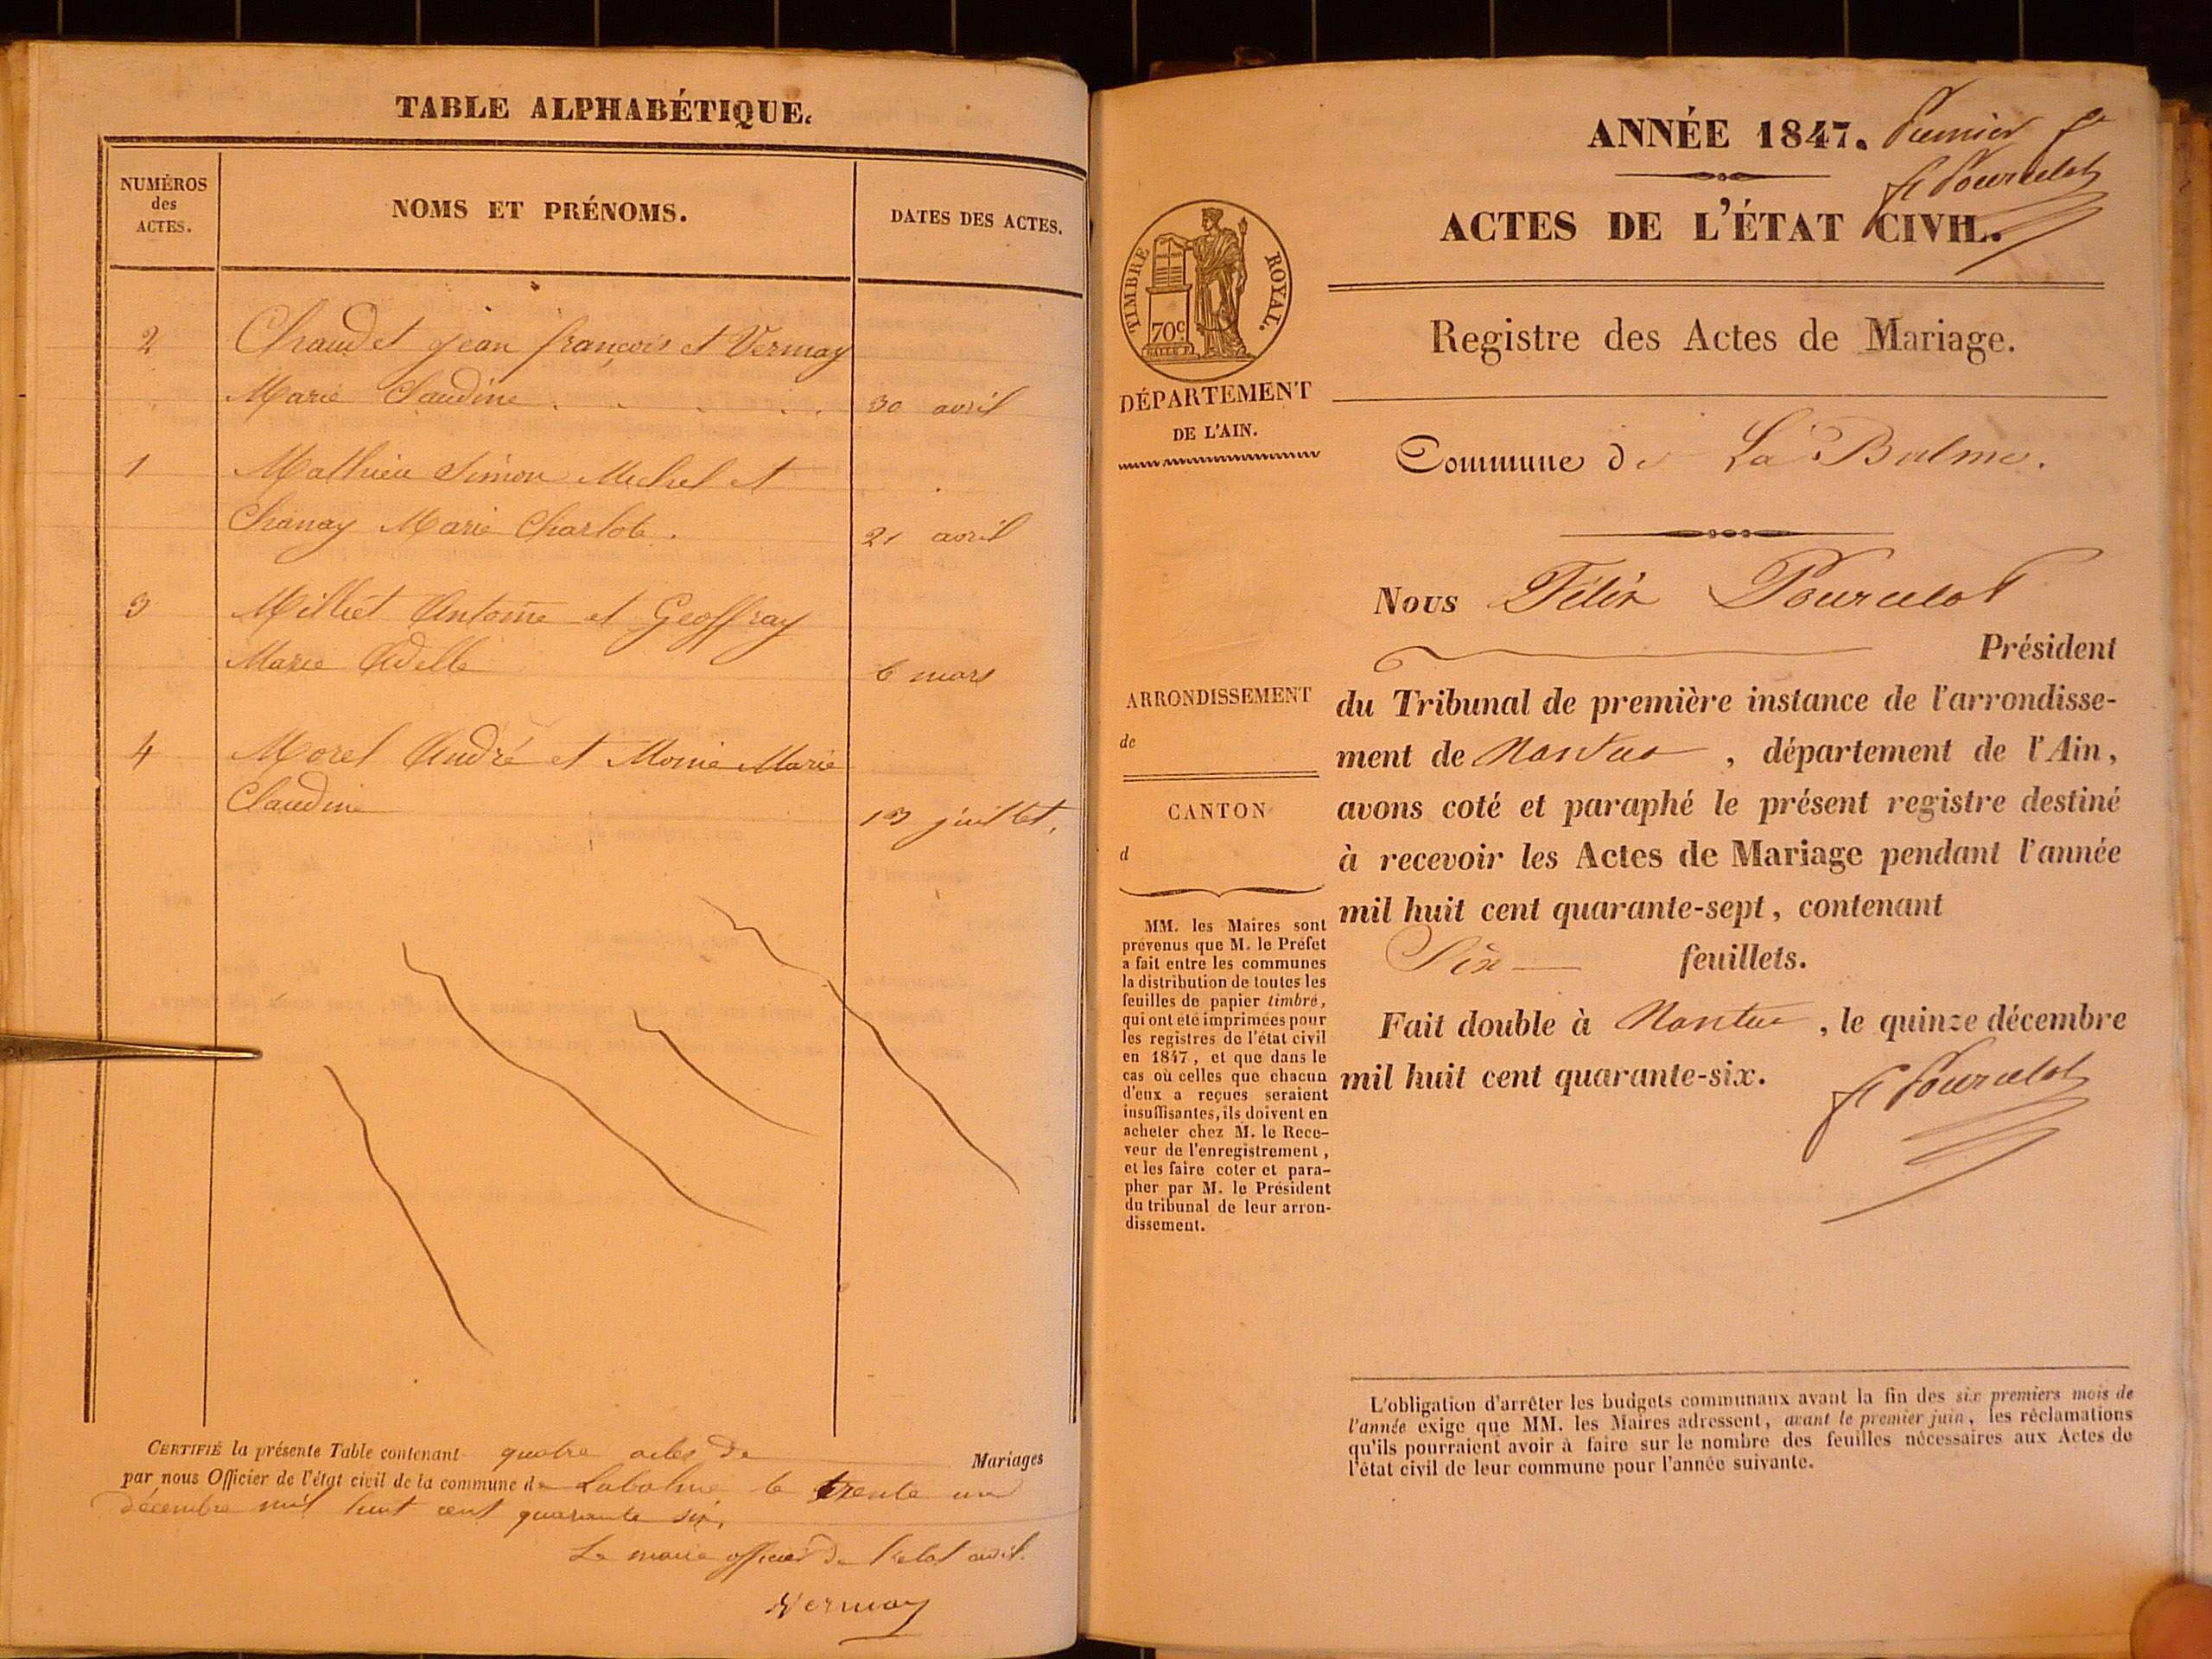 TABLE ALPHABÉTIQUE.
NUMÉROS
des
ACTES.
NOMS ET PRÉNOMS.
DATES DES ACTES.
2 Chaudet jean françois et Vermay
Marie Claudine . . . . . . 30 avril
1 Mathieu Simon Michel et
Chanay Marie Charlote. 21 avril
3 Milliet Antoine et Geoffray
Marie Adelle 6 mars
4 Morel André et Monie Marie
Claudine 13 juillet.
CERTIFIÉ la présente Table contenant quatre actes de Mariages
par nous Officier de l'état civil de la commune de Labalme le trente un
décembre mil huit cent quarante six.
Le maire officier de l'etat civil.
Vermay
ANNÉE 1847. Premier fe
F Pourcelot
ACTES DE L'ÉTAT CIVIL.
TIMBRE ROYAL.
70c
Registre des Actes de Mariage.
DÉPARTEMENT
DE L'AIN.
Commune de La Balme.
Nous Félix Pourcelot
Président
du Tribunal de première instance de l'arrondisse-
ment de Nantua , département de l'Ain,
avons coté et paraphé le présent registre destiné
à recevoir les Actes de Mariage pendant l'année
mil huit cent quarante-sept, contenant
Six feuillets.
Fait double à Nantua , le quinze décembre
mil huit cent quarante-six.
F Pourcelot
ARRONDISSEMENT
de
CANTON
d
MM. les Maires sont
prévenus que M. le Préfet
a fait entre les communes
la distribution de toutes les
feuilles de papier timbré,
qui ont été imprimées pour
les registres de l'état civil
en 1847, et que dans le
cas où celles que chacun
d'eux a reçues seraient
insuffisantes, ils doivent en
acheter chez M. le Rece-
veur de l'enregistrement,
et les faire coter et para-
pher par M. le Président
du tribunal de leur arron-
dissement.
L'obligation d'arrêter les budgets communaux avant la fin des six premiers mois de
l'année exige que MM. les Maires adressent, avant le premier juin, les réclamations
qu'ils pourraient avoir à faire sur le nombre des feuilles nécessaires aux Actes de
l'état civil de leur commune pour l'année suivante.